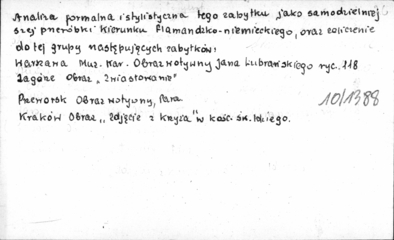 Analiza formalna i stylistyczna tego zabytku jako samodzielniej
szej przeróbki kierunku flamandzko-niemieckiego, oraz zaliczenie
do tej grupy następujących zabytków:
Warszawa Muz. Nar. Obraz wotywny Jana Lubrańskiego ryc. 118
Zagórz Obraz „Zwiastowanie"
Przeworsk Obraz wotywny, Fara.
10/1388
Kraków Obraz „Zdjęcie z krzyża" w kośc. św. Idziego.